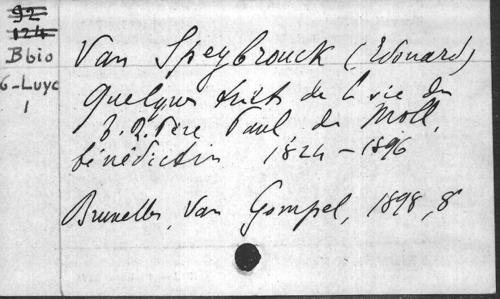 92
124
B bio
6-Luyc
1
Van Speybrouck (Edouard)
Quelques traits de la vie du
t. R. Père Paul de Moll,
bénédictin 1824-1896
Bruxelles, Van Gompel, 1898, 8°